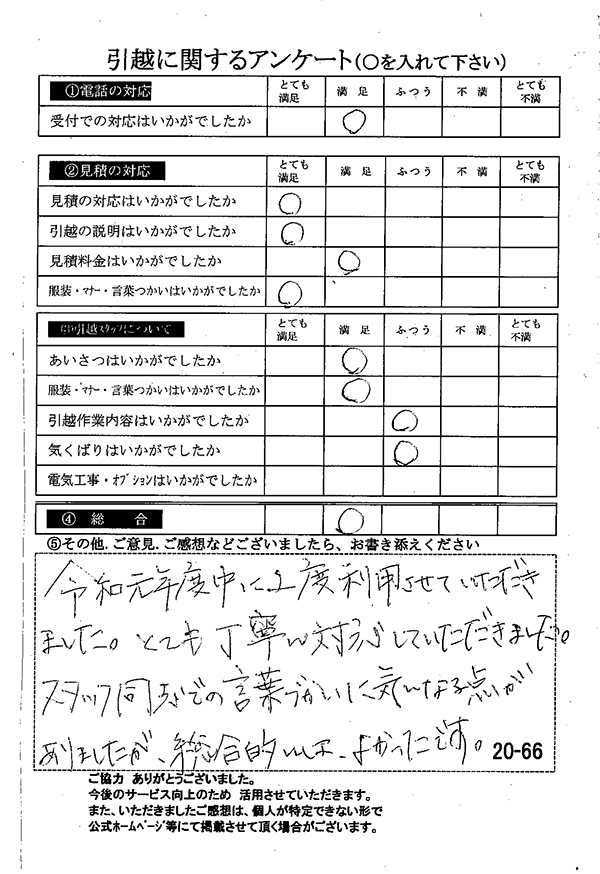 引越に関するアンケート(〇を入れて下さい)
①電話の対応 とても満足 満 足 ふつう 不 満 とても不満
受付での対応はいかがでしたか
②見積の対応 とても満足 満 足 ふつう 不 満 とても不満
見積の対応はいかがでしたか
引越の説明はいかがでしたか
見積料金はいかがでしたか
服装・マナー・言葉つかいはいかがでしたか
引越スタッフについて とても満足 満 足 ふつう 不 満 とても不満
あいさつはいかがでしたか
服装・マナー・言葉つかいはいかがでしたか
引越作業内容はいかがでしたか
気くばりはいかがでしたか
電気工事・オプションはいかがでしたか
④ 総 合
⑤その他、ご意見、ご感想などございましたら、お書き添えください
令和元年度中に2度利用させていただき
ました。とても丁寧な対応していただきました。
スタッフ同士での言葉づかいに気になる点が
ありましたが、総合的には、よかったです。
20-66
ご協力 ありがとうございました。
今後のサービス向上のため 活用させていただきます。
また、いただきましたご感想は、個人が特定できない形で
公式ホームページ等にて掲載させて頂く場合がございます。